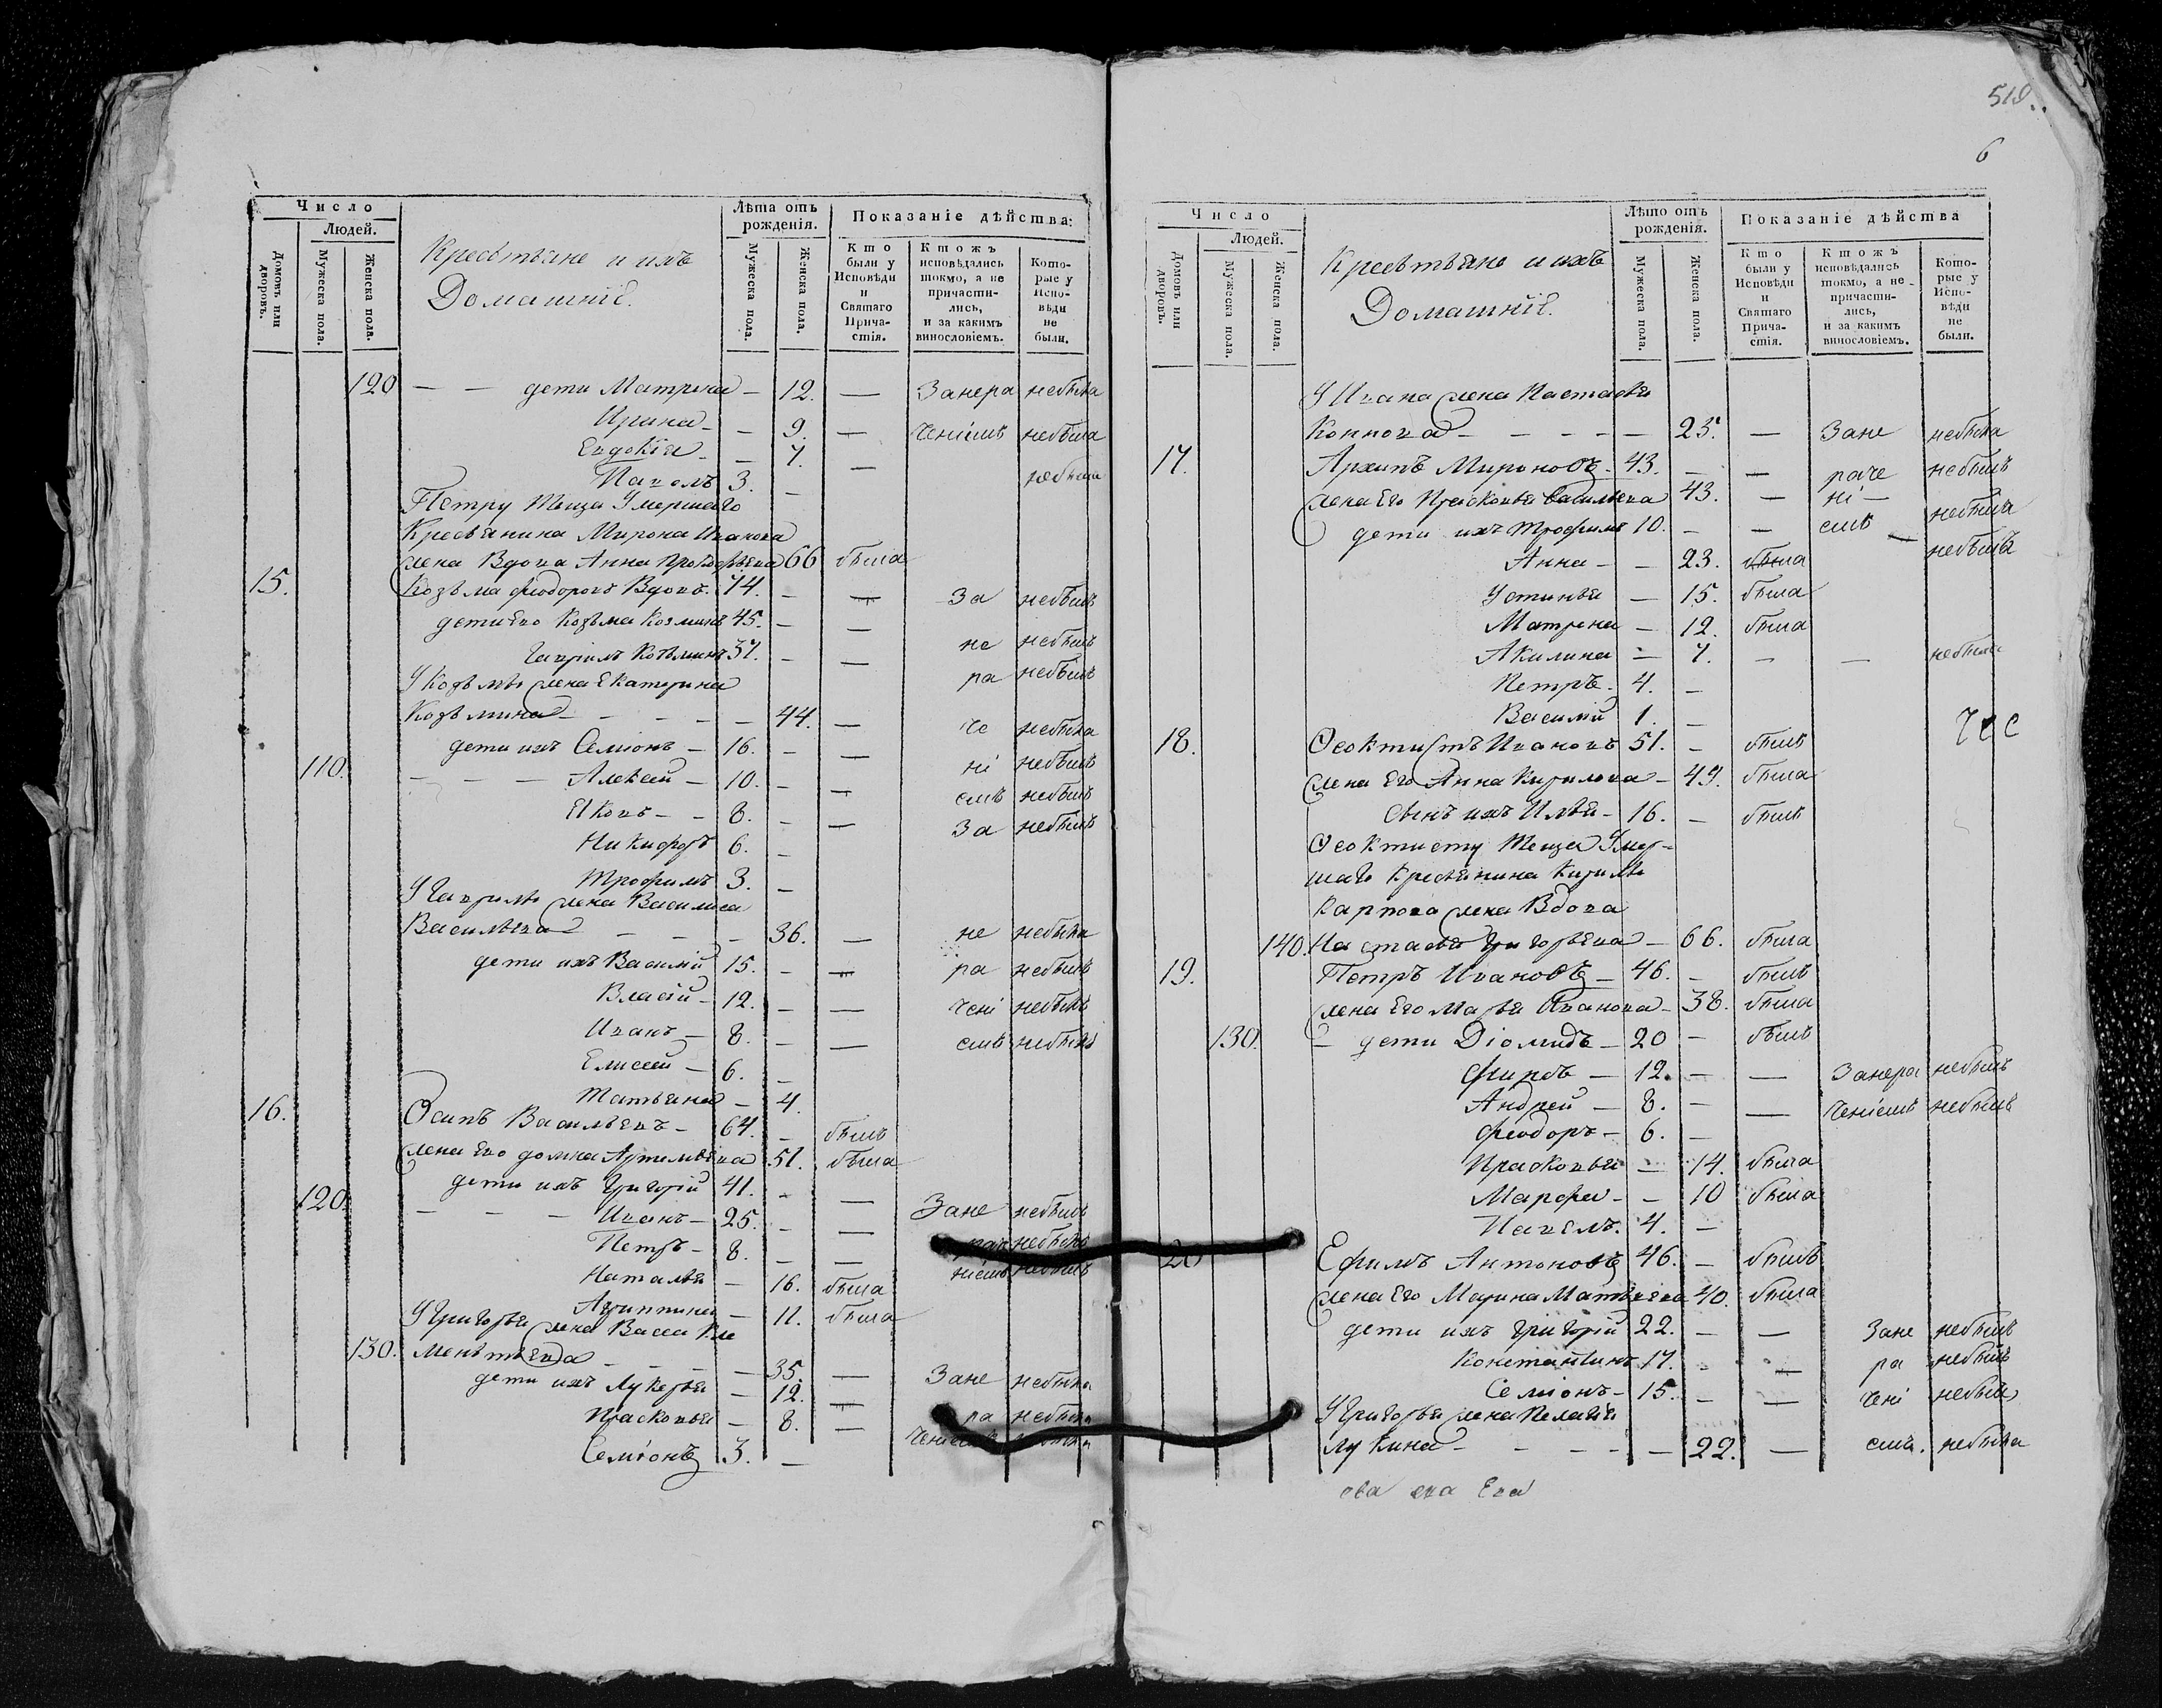 Число
Людей.
Домовъ или дворовъ.
Мужеска пола.
Женска пола.
Крестьяне и ихъ
Домашніе.
Лѣта отъ рожденія.
Мужеска пола.
Женска пола.
Показаніе дѣйства:
Кто были у Исповѣди и Святаго Причастія.
Ктожъ исповѣдались токмо, а не причастились, и за какимъ винословіемъ.
Которые у Исповѣди не были.
120 — — дети Матрена — 12. — Занера небыла
Ирина — — 9. — ченіемъ небыла
Евдокіа — — 7. — небыла
Павелъ 3. —
Петру Теща Умершаго
Крестьянина Мирона Иванова
жена Вдова Анна Прокофьева 66 была
15. Козьма Феодоровъ Вдовъ. 74. — — За небылъ
дети Его Козьма Козминъ 45. — — не небылъ
Гаврилъ Козьминъ 37. — — ра небылъ
У Козьмы жена Екатерина
Козьмина — — — — 44. — че небыла
дети ихъ Семіонъ — 16. — — ні небылъ
110. — — — Алексей — 10. — — емъ небылъ
Яковъ — — 8. — — За небылъ
Никифоръ 6. —
Трофимъ 3. —
У Гаврилы жена Василиса
Васильева — — — 36. — не небыла
дети ихъ Василій 15. — — ра небылъ
Власій — 12. — — чені небылъ
Иванъ — 8. — — емъ небылъ
Елисей — 6. —
Татьяна — 4.
16. Осипъ Васильевъ — 64. — былъ
жена Его домна Артемьева 51. была
дети ихъ Григорій 41. — — Зане небылъ
120. — — — Иванъ — 25. — — небылъ
Петръ — 8. — — ніемъ небылъ
Наталья — 16. была
Агриппина — 11. была
У Григорья жена Васса Кле
130. ментьева — — — 35. — Зане небыла
дети ихъ Лукерья — 12. — ра небыла
Прасковья — 8. —
Семіонъ 3. —
519.
6
Число
Людей.
Домовъ или дворовъ.
Мужеска пола.
Женска пола.
Крестьяне и ихъ
Домашніе.
Лѣто отъ рожденія.
Мужеска пола.
Женска пола.
Показаніе дѣйства
Кто были у Исповѣди и Святаго Причастія.
Ктожъ исповѣдались токмо, а не причастились, и за какимъ винословіемъ.
Которые у Исповѣди не были.
У Ивана жена Настасья
Коннова — — — — — 25. — Зане небыла
17. Архипъ Мироновъ 43. — — раче небылъ
жена Его Прасковья Васильева 43. — ні — небыла
дети ихъ Трофимъ 10. — — емъ — небылъ
Анна — — 23. была
Устинья — 15. была
Матрена — 12. была
Акилина — 7. — — небыла
Петръ. 4. —
Василій 1. —
18. Ѳеоктистъ Ивановъ 51. — былъ
жена Его Анна Кирилова — 49. была
сынъ ихъ Илья — 16. — былъ
Ѳеоктисту Теща Умер-
шаго Крестьянина Кирилы
Карпова жена Вдова
140. Настасья Григорьева — 66. была
19. Петръ Ивановъ — 46. — былъ
жена Его Марья Иванова — 38. была
130. — дети Діомидъ — 20 — былъ
Фирсъ — 12. — — Занера небылъ
Андрей — 8. — — ченіемъ небылъ
Феодоръ — 6. —
Прасковья — 14. была
Марфа — — 10 была
Павелъ. 4. —
20 Ефимъ Антоновъ 46. — былъ
жена Его Марина Матвеева 40. была
дети ихъ Григорій 22. — — Зане небылъ
Константинъ 17. — — ра небылъ
Семіонъ — 15. — — чені небылъ
У Григорья жена Пелагія
Лукина — — — — — 22. — емъ. небыла